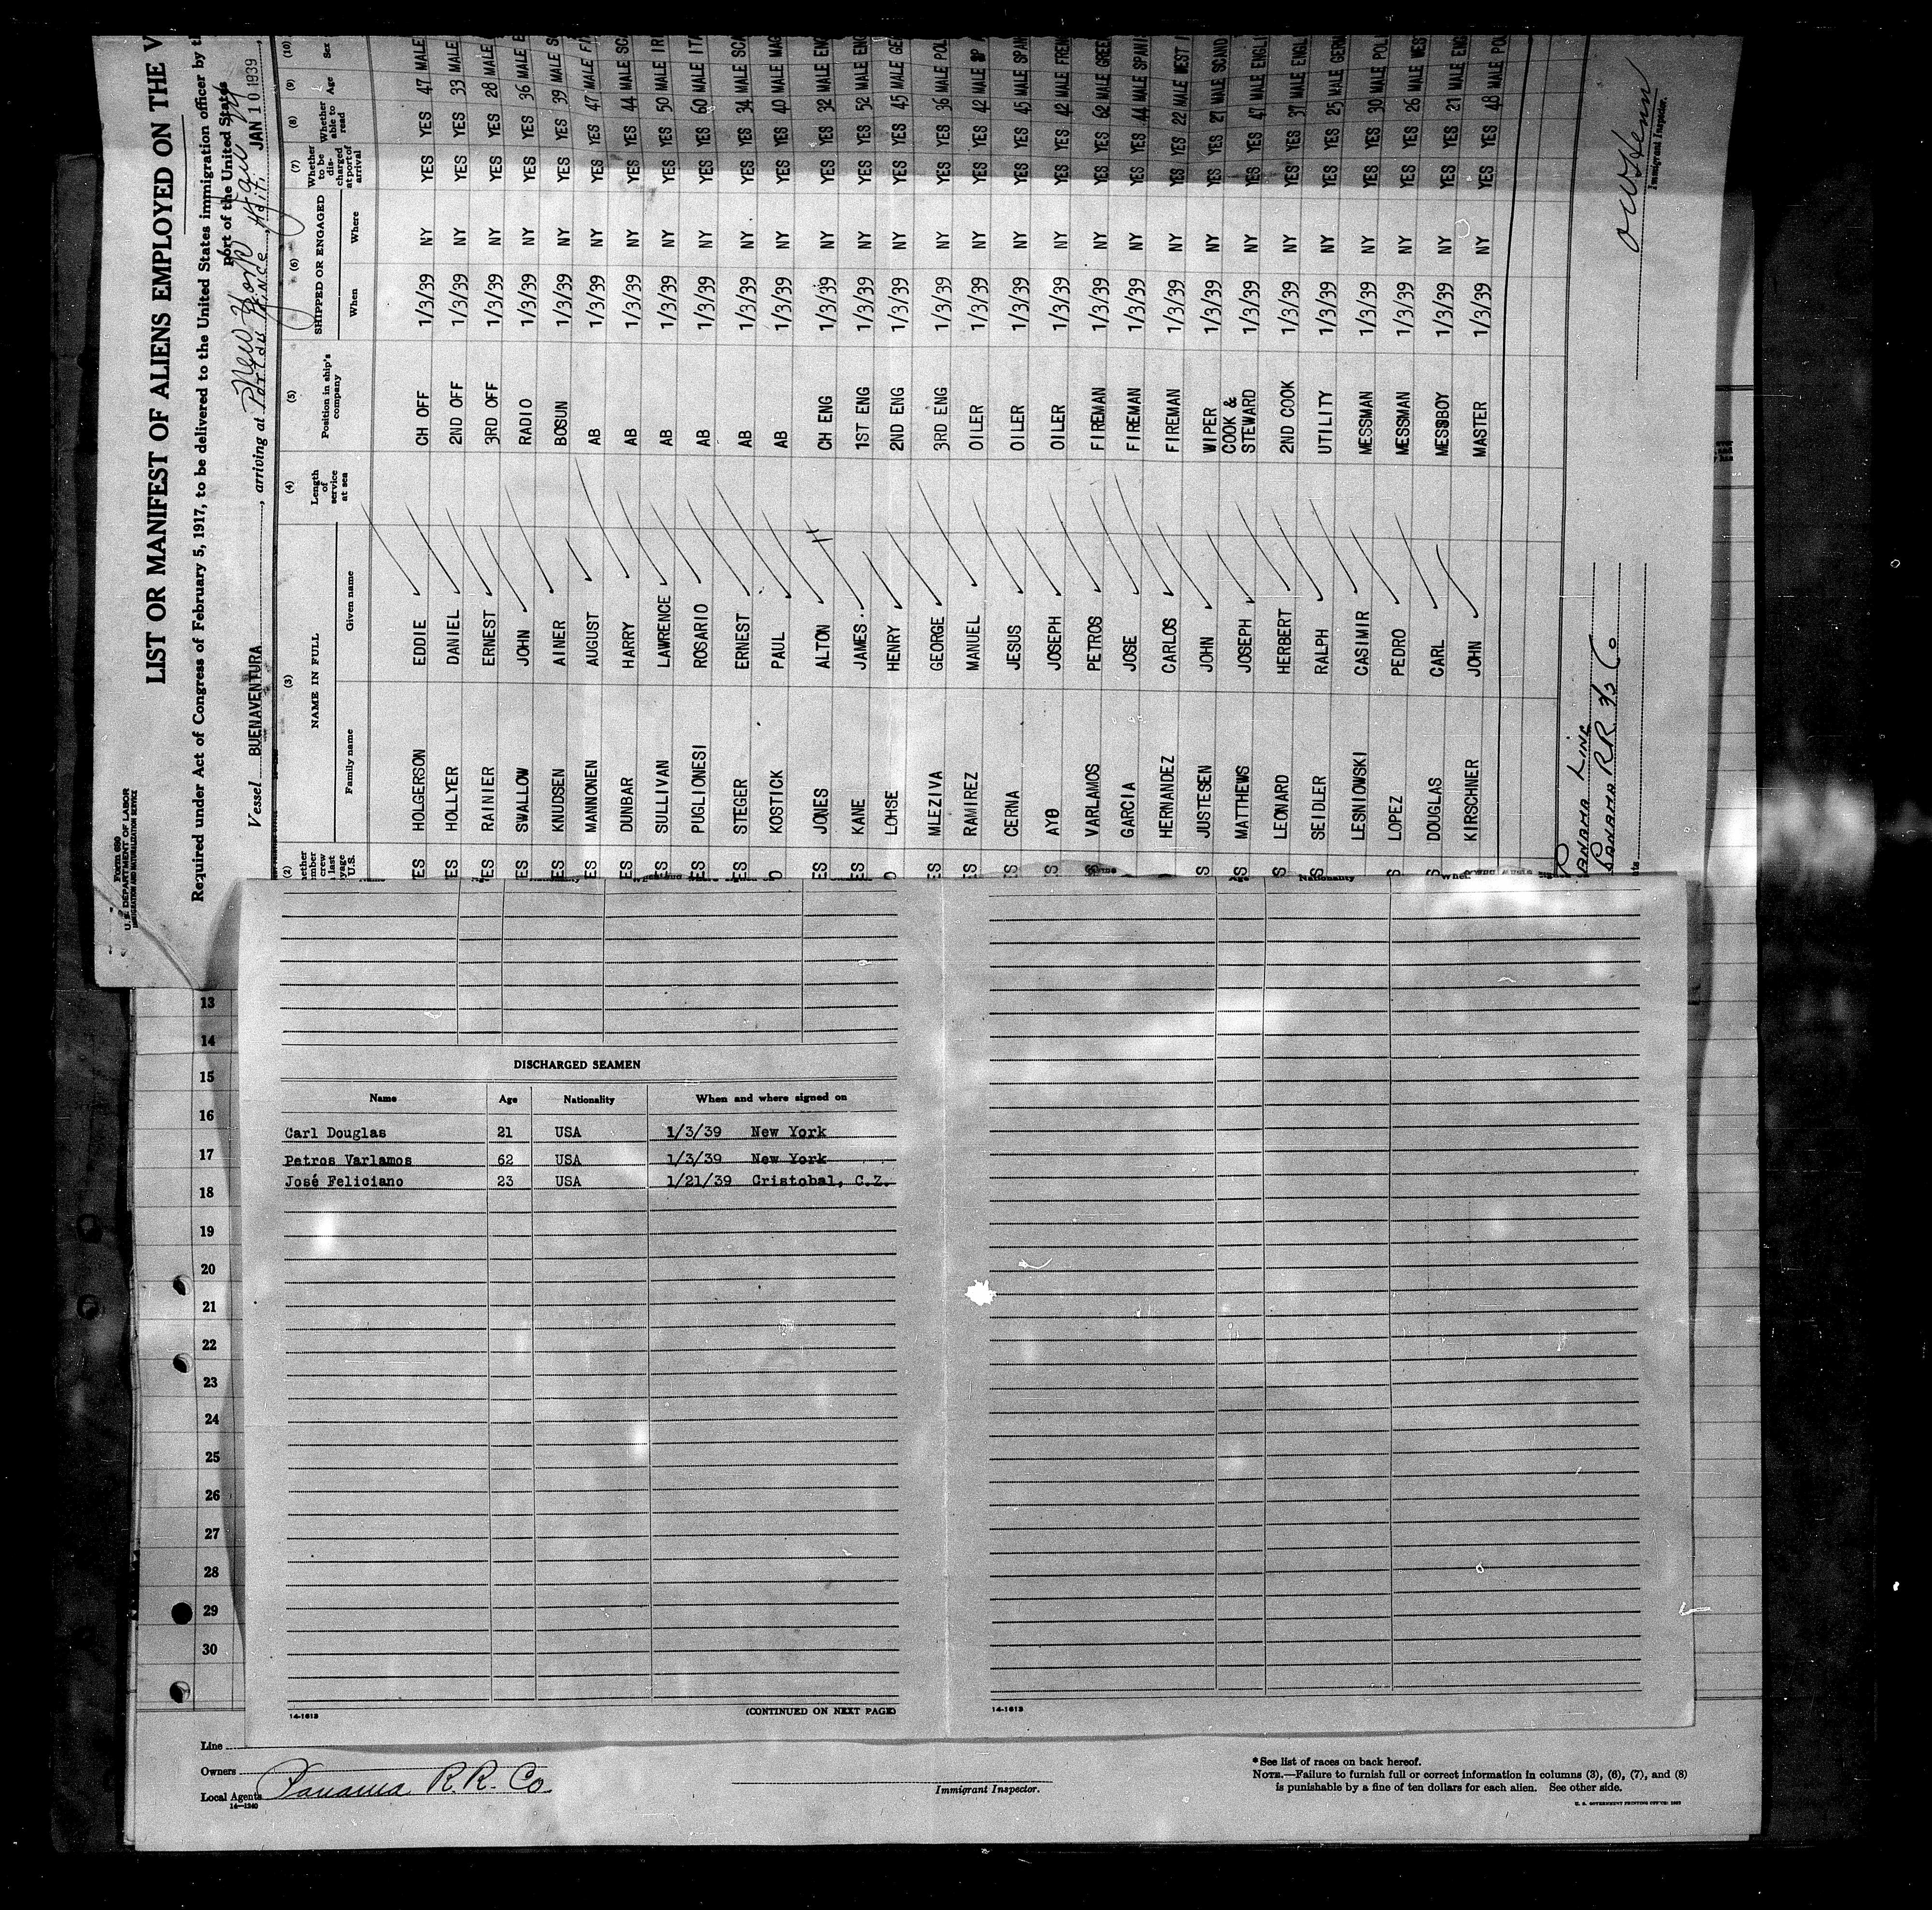 Form 680
U. S. DEPARTMENT OF LABOR
IMMIGRATION AND NATURALIZATION SERVICE
LIST OR MANIFEST OF ALIENS EMPLOYED ON THE V
Required under Act of Congress of February 5, 1917, to be delivered to the United States immigration officer by th
Port of the United States
Vessel BUENAVENTURA, arriving at New York JAN 10 1939
(2) (3) (4) (5) (6) (7) (8) (9) (10)
NAME IN FULL
Family name Given name
Length of service at sea
Position in ship's company
SHIPPED OR ENGAGED
When Where
Whether to be discharged at port of arrival
Whether able to read
Age Sex
ES HOLGERSON EDDIE CH OFF 1/3/39 NY YES YES 47 MALE
ES HOLLYER DANIEL 2ND OFF 1/3/39 NY YES YES 33 MALE
ES RAINIER ERNEST 3RD OFF 1/3/39 NY YES YES 28 MALE
ES SWALLOW JOHN RADIO 1/3/39 NY YES YES 36 MALE E
ES KNUDSEN AINER BOSUN 1/3/39 NY YES YES 39 MALE S
ES MANNONEN AUGUST AB 1/3/39 NY YES YES 47 MALE FI
ES DUNBAR HARRY AB 1/3/39 NY YES YES 44 MALE SC
ES SULLIVAN LAWRENCE AB 1/3/39 NY YES YES 50 MALE IR
ES PUGLIONESI ROSARIO AB 1/3/39 NY YES YES 60 MALE ITA
ES STEGER ERNEST AB 1/3/39 NY YES YES 34 MALE SCA
O KOSTICK PAUL AB 1/3/39 NY YES YES 40 MALE MAG
ES JONES ALTON CH ENG 1/3/39 NY YES YES 32 MALE ENG
ES KANE JAMES 1ST ENG 1/3/39 NY YES YES 52 MALE ENG
O LOHSE HENRY 2ND ENG 1/3/39 NY YES YES 45 MALE GE
ES MLEZIVA GEORGE 3RD ENG 1/3/39 NY YES YES 36 MALE POL
ES RAMIREZ MANUEL OILER 1/3/39 NY YES YES 42 MALE SP
ES CERNA JESUS OILER 1/3/39 NY YES YES 45 MALE SPAN
ES AYO JOSEPH OILER 1/3/39 NY YES YES 42 MALE FREN
S VARLAMOS PETROS FIREMAN 1/3/39 NY YES YES 62 MALE GREE
GARCIA JOSE FIREMAN 1/3/39 NY YES YES 44 MALE SPANI
HERNANDEZ CARLOS FIREMAN 1/3/39 NY YES YES 22 MALE WEST I
S JUSTESEN JOHN WIPER 1/3/39 NY YES YES 27 MALE SCAND
S MATTHEWS JOSEPH COOK & STEWARD 1/3/39 NY YES YES 47 MALE ENGLI
S LEONARD HERBERT 2ND COOK 1/3/39 NY YES YES 37 MALE ENGL
S SEIDLER RALPH UTILITY 1/3/39 NY YES YES 25 MALE GERM
S LESNIOWSKI CASIMIR MESSMAN 1/3/39 NY YES YES 30 MALE POLI
S LOPEZ PEDRO MESSMAN 1/3/39 NY YES YES 26 MALE WES
S DOUGLAS CARL MESSBOY 1/3/39 NY YES YES 21 MALE ENG
S KIRSCHNER JOHN MASTER 1/3/39 NY YES YES 48 MALE POL
PANAMA LINE
PANAMA RR S/S Co
Immigrant Inspector.
13
14
15
16
17
18
19
20
21
22
23
24
25
26
27
28
29
30
DISCHARGED SEAMEN
Name Age Nationality When and where signed on
Carl Douglas 21 USA 1/3/39 New York
Petros Varlamos 62 USA 1/3/39 New York
José Feliciano 23 USA 1/21/39 Cristobal, C.Z.
14-1613 (CONTINUED ON NEXT PAGE)
14-1613
Line
Owners
Local Agents Panama R.R. Co.
14-1240
Immigrant Inspector.
*See list of races on back hereof.
NOTE.—Failure to furnish full or correct information in columns (3), (6), (7), and (8)
is punishable by a fine of ten dollars for each alien. See other side.
U. S. GOVERNMENT PRINTING OFFICE: 1937